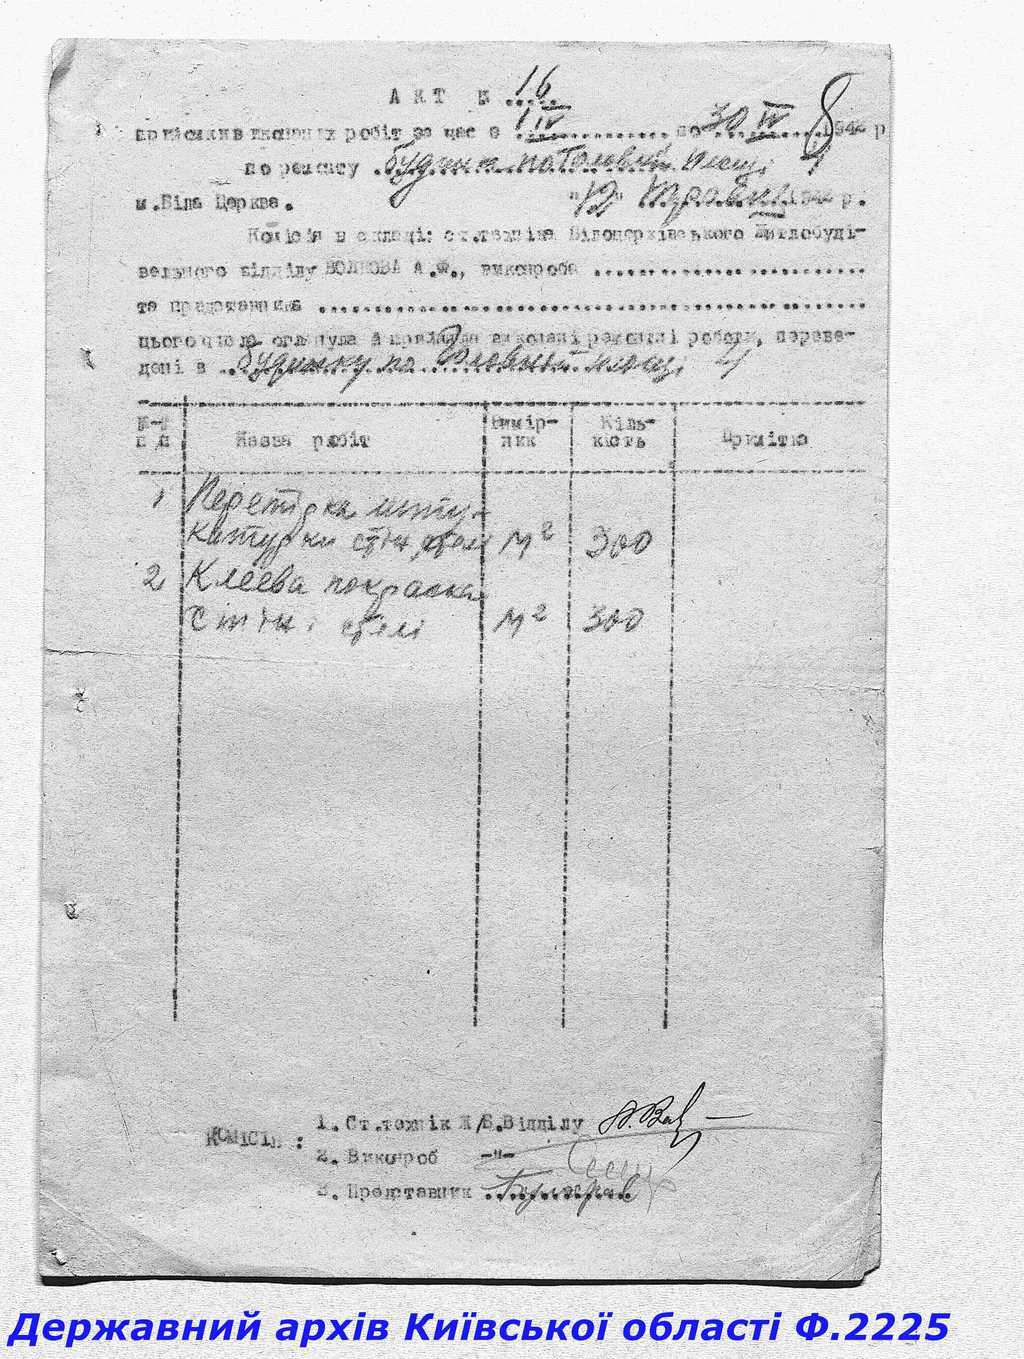 АКТ № 16
прийомки виконаних робіт за час з 1 IV по 30 IV 1942 р
по ремонту будинку по Головній площі 4
м.Біла Церква. "12" травня 1942 р.
Комісія в складі: ст.техніка Білоцерківського Житлобуді-
вельного відділу ВОЛКОВА А.Ф., виконроба
та представника
цього числа оглянула й прийняла виконані ремонтні роботи, переве-
дені в будинку по Головній площі 4
№-№ п/п Назва робіт Вимір-ник Кіль-кість Примітка
1 Перетірка шту-
катурки стін, стелі м² 300
2 Клеєва покраска
стін і стелі м² 300
КОМІСІЯ:
1. Ст.технік Ж/Б.Відділу
2. Виконроб -"-
3. Представник
8
Державний архів Київської області Ф.2225